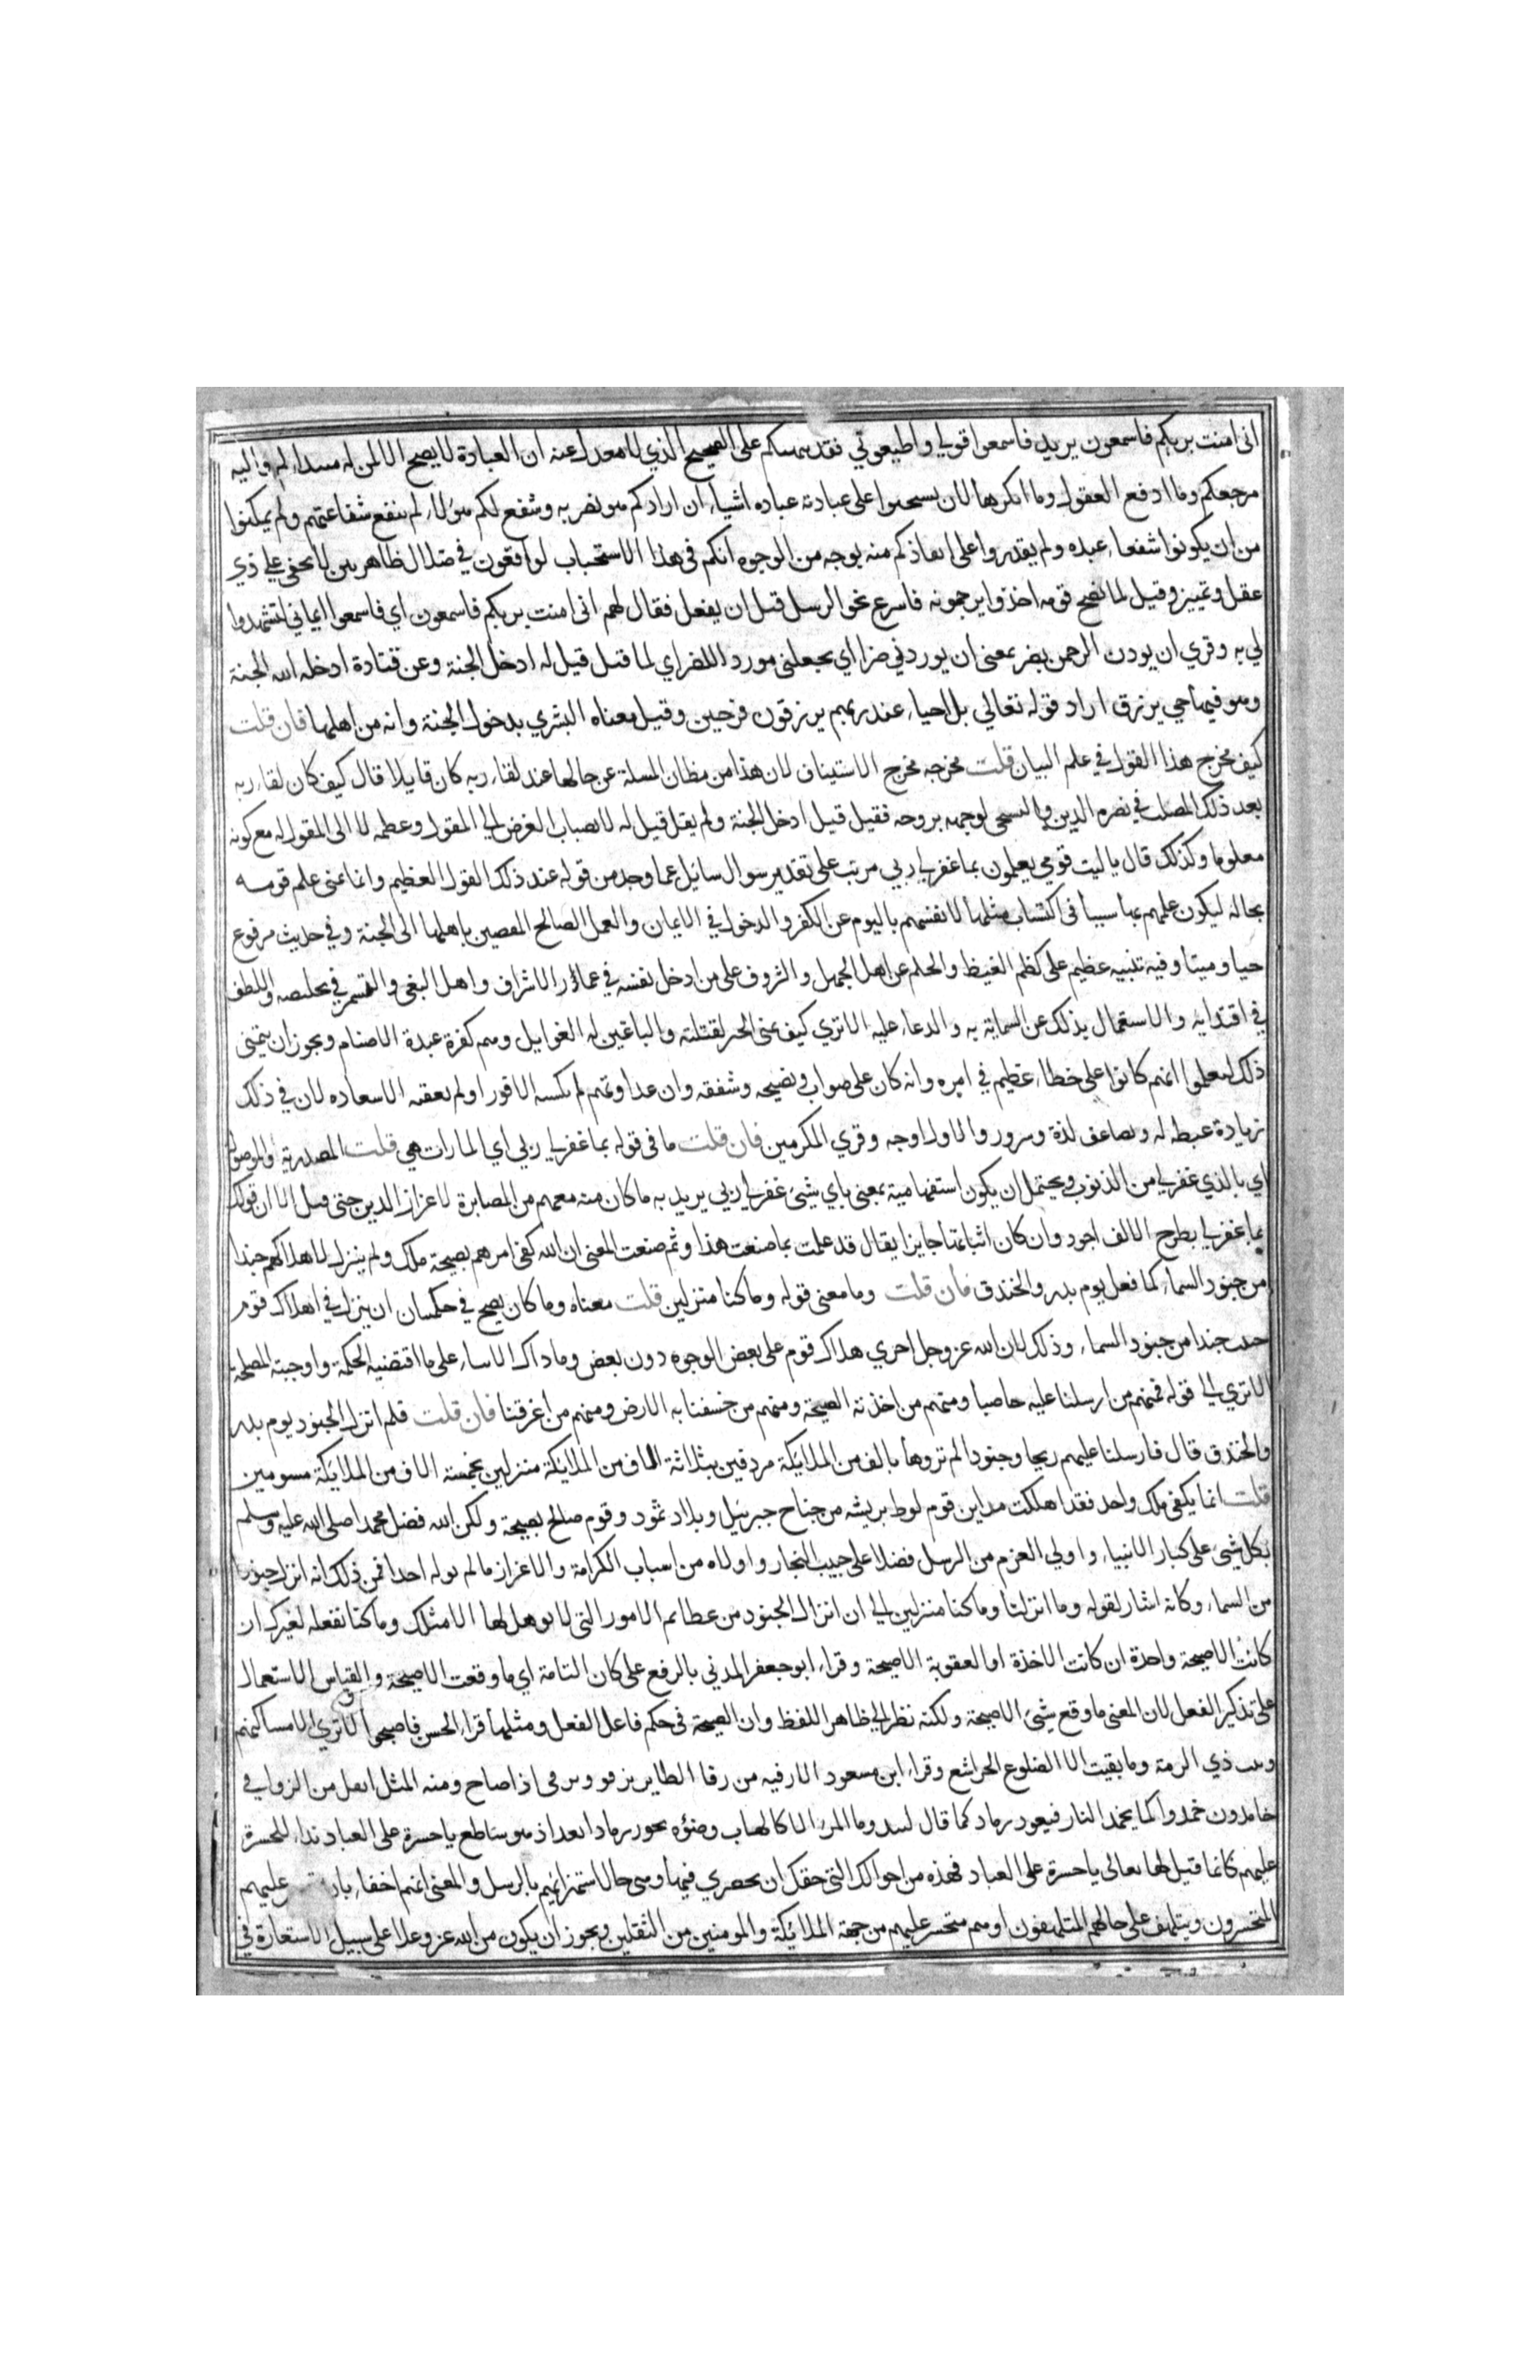 انى امنت بربكم فاسمعون يريد فاسمعوا قولي واطيعوني فقد نبهتكم على الصحيح الذي لا معدل عنه ان العبادة لا يصح الا لمن له مبتداكم واليه
مرجعكم وما ادفع العقول وما انكرها لان يستحبوا على عبادته عباده اشيا ان ارادكم هو بضر به وشفع لكم هؤلاء لم تنفع شفاعتهم ولم يمكنوا
من ان يكونوا شفعاء عبده ولم يقدروا على انقاذكم منه بوجه من الوجوه انكم فى هذا الاستحباب لواقعون في ضلال ظاهر بين لا يخفى على ذي
عقل وتمييز وقيل لما نصح قومه اخذوا يرجمونه فاسرع نحو الرسل قبل ان يقتل فقال لهم انى امنت بربكم فاسمعون اي فاسمعوا ايماني تشهدوا
لي به وقري ان يردن الرحمن بضر بمعنى ان يوردني ضرا اي يجعلنى مورد اللضر اي لما قتل قيل له ادخل الجنة وعن قتادة ادخله الله الجنة
وهو فيها حي يرزق اراد قوله تعالي بل احياء عند ربهم يرزقون فرحين وقيل معناه البشري بدخول الجنة وانه من اهلها فان قلت
كيف مخرج هذا القول في علم البيان قلت مخرجه مخرج الاستيناف لان هذا من مظان المسلة عن حالها عند لقاء ربه كان قايلا قال كيف كان لقاء ربه
بعد ذلك التصلب في نصرة الدين والتسخى لوجهه بروحه فقيل قيل ادخل الجنة ولم يقل قيل له لانصباب الغرض الي المقول وعظمه لا الى المقول له مع كونه
معلوما وكذلك قال يا ليت قومي يعلمون بما غفر لي ربي مرتب على تقدير سوال سائل عما وجد من قوله عند ذلك الفوز العظيم وانما تمنى علم قومه
بحاله ليكون علمهم بها سببا فى اكتساب مثلها لانفسهم بالتوبة عن الكفر والدخول في الايمان والعمل الصالح المفضين باهلها الى الجنة وفي حديث مرفوع
حيا وميتا وفيه تنبيه عظيم على كظم الغيظ والحلم عن اهل الجهل والترؤف على من ادخل نفسه في غمار الاشرار واهل البغى والتشمر في تخليصه واللطف
في افتدايه والاستعمال بذلك عن الشماتة به والدعاء عليه الا تري كيف تمنى الخير لقتلته والباغين له الغوايل وهم كفرة عبدة الاصنام ويجوز ان يتمنى
ذلك ليعلموا انهم كانوا على خطاء عظيم في امره وانه كان على صواب ونصيحة وشفقه وان عداوتهم لم تكسبه الا فوزا ولم تعقبه الا سعاده لان في ذلك
زيادة غبطه له وتضاعف لذة وسرور والاول اوجه وقري المكرمين فان قلت ما فى قوله بما غفر لي ربي اي الماءات هي قلت المصدرية والموصولة
اي بالذي غفر لي من الذنوب ويحتمل ان يكون استفهامية بمعنى باي شيئ غفر لي ربي يريد به ما كان منه معهم من المصابرة لاعزاز الدين حتى قتل الا ان قولك
بما غفر لي بطرح الالف اجود وان كان اثباتها جايزا يقال قد علمت بما صنعت هذا وبم صنعت المعنى ان الله كفى امرهم بصيحة ملك ولم ينزل لاهلاكهم جندا
من جنود السماء كما فعل يوم بدر والخندق فان قلت وما معنى قوله وما كنا منزلين قلت معناه وما كان يصح في حكمتنا ان ينزل في اهلاك قوم
حبيب جندا من جنود السماء وذلك لان الله عز وجل اجري هلاك قوم على بعض الوجوه دون بعض وما ذاك الا بناء على ما اقتضيه الحكمة واوجبته المصلحة
الا تري الي قوله فمنهم من ارسلنا عليه حاصبا ومنهم من اخذته الصيحة ومنهم من خسفنا به الارض ومنهم من اغرقنا فان قلت فلم انزل الجنود يوم بدر
والخندق قال فارسلنا عليهم ريحا وجنودا لم تروها بالف من الملايكة مردفين بثلاثة الاف من الملايكة منزلين بخمسة الاف من الملايكة مسومين
قلت انما يكفى ملك واحد فقد اهلكت مداين قوم لوط بريشه من جناح جبرئيل وبلاد ثمود وقوم صالح بصيحة ولكن الله فضل محمدا صلى الله عليه وسلم
بكل شيئ على كبار الانبياء واولي العزم من الرسل فضلا على حبيب النجار واولاه من اسباب الكرامة والاعزاز ما لم يوله احدا فمن ذلك انه انزل جنودا
من السماء وكانه اشار لقوله وما انزلنا وما كنا منزلين الي ان انزال الجنود من عظائم الامور التى لا يوهل لها الا مثلك وما كنا نفعله لغيرك ان
كانت الا صيحة واحدة ان كانت الاخذة او العقوبة الا صيحة وقراء ابو جعفر المدني بالرفع على كان التامة اي ما وقعت الا صيحة والقياس الاستعمال
على تذكير الفعل لان المعنى ما وقع شيئ الا صيحة ولكنه نظر الي ظاهر اللفظ وان الصيحة فى حكم فاعل الفعل ومثلها قراء الحسن فاصبحوا لا تري الا مساكنهم
وبيت ذي الرمة وما بقيت الا الضلوع الجراشع وقراء ابن مسعود الا زقيه من زقا الطاير يزقو ويزقى اذا صاح ومنه المثل اثقل من الزواقي
خامدون خمدوا كما يخمد النار فيعود رماد كما قال لبيد وما المرء الا كالشهاب وضوءه يحور رمادا بعد اذ هو ساطع يا حسرة على العباد نداء للحسرة
عليهم كانما قيل لها تعالى يا حسرة على العباد فهذه من احوالك التى حقك ان تحضري فيها وهى حال استهزائهم بالرسل والمعنى انهم احقاء بان عليهم
المتحسرون ويتلهف على حالهم المتلهفون او هم متحسر عليهم من جهة الملائكة والمومنين من الثقلين ويجوز ان يكون من الله عز وعلا على سبيل الاستعارة في